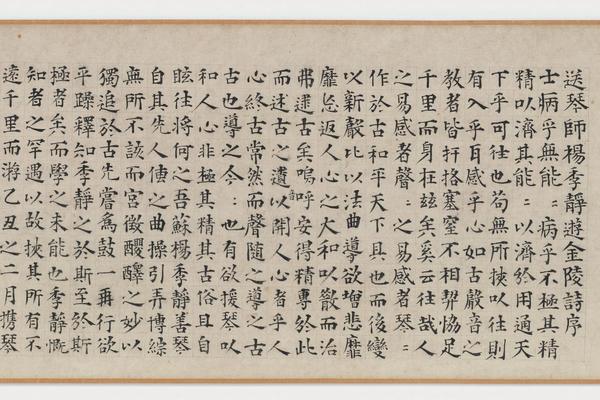 送琴師楊季靜遊金陵詩序
士病乎無能＝病乎不極其精
精以濟其能＝以濟於用通天
下乎可往也苟無所挾以往則
有入乎耳感乎心如古聲音之
教者皆扞格塞窒不相契協足
千里而身狂玆矣奚云往哉人
之易感者聲＝之易感者琴＝
作於古和平天下具也而後變
以新聲比以法曲導欲增悲靡
靡忘返人心之大和以散而治
弗逮古矣嗚呼安得精專於此
而述古之遺以開人心者乎人
心終古常然而聲隨之導之古
古也導之今＝也有欲援琴以
和人心非極其精其古俗且自
眩往將何之吾蘇楊季靜善琴
自其先人傳之曲操引弄博綜
無所不該而宮徵醲醳之妙以
獨追於古先嘗為鼓一再行欲
平躁釋知季靜之於斯至於斯
極者矣而學之未能也季靜慨
知者之罕遇以故挾其所有不
遠千里而游乙丑之二月攜琴